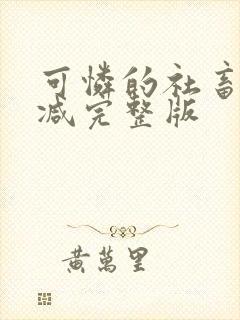 可憐的社畜
减完整版
黃萬里